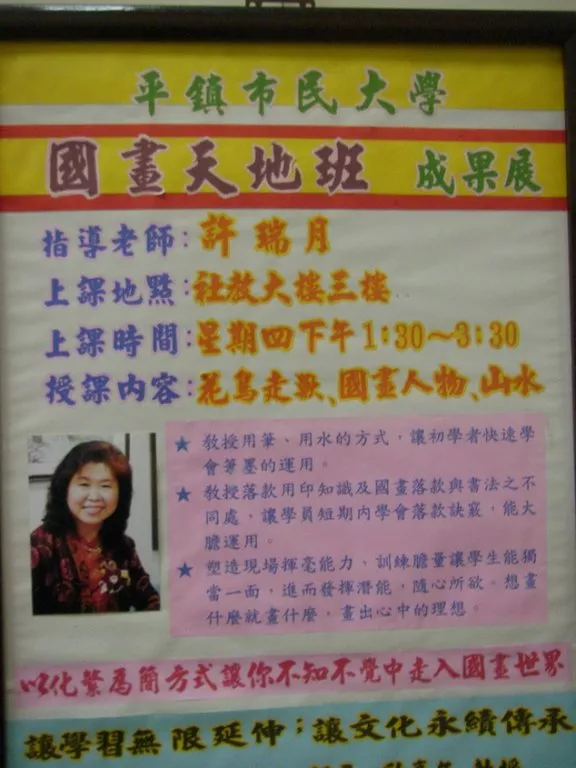 平鎮市民大學
國畫天地班 成果展
指導老師:許瑞月
上課地點:社教大樓三樓
上課時間:星期四下午1:30~3:30
授課內容:花鳥走獸、國畫人物、山水
★ 教授用筆、用水的方式，讓初學者快速學
會筆墨的運用。
★ 教授落款用印知識及國畫落款與書法之不
同處，讓學員短期內學會落款訣竅，能大
膽運用。
★ 塑造現場揮毫能力、訓練膽量讓學生能獨
當一面，進而發揮潛能，隨心所欲。想畫
什麼就畫什麼，畫出心中的理想。
以化繁爲簡方式讓你不知不覺中走入國畫世界
讓學習無限延伸；讓文化永續傳承